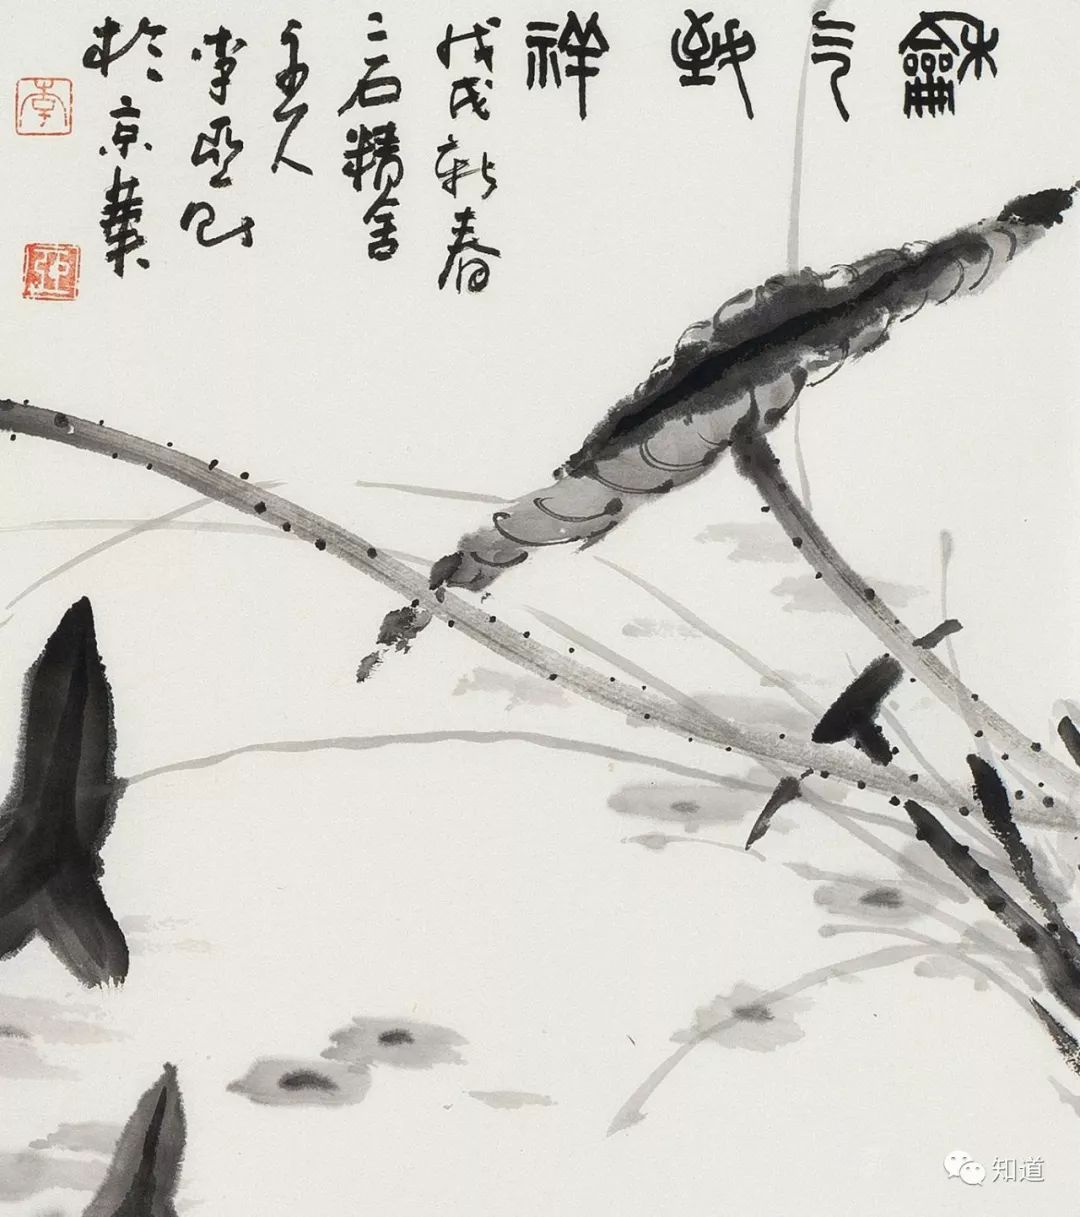 龢气致祥
戊戌新春
二石精舍
主人
李亞
於京華
李
亞
知道